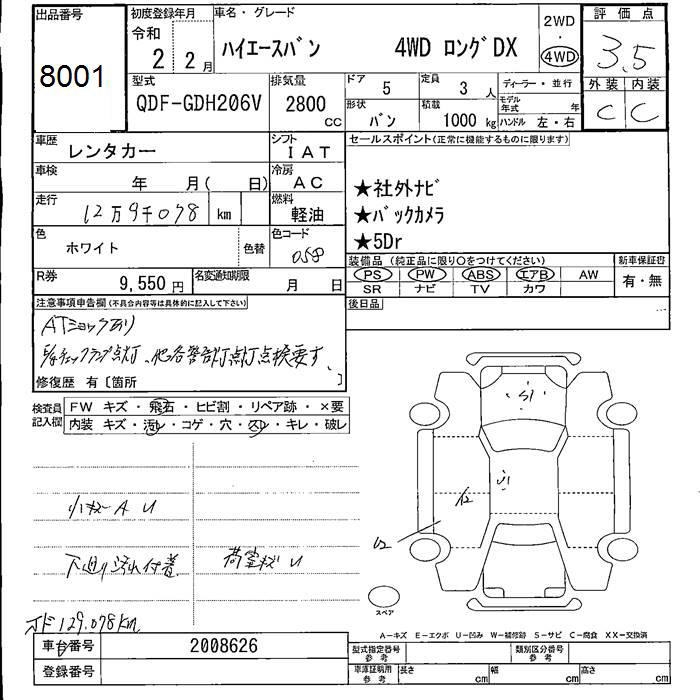 出品番号
8001
初度登録年月
令和
2 2月
車名・グレード
ハイエースバン 4WD ロングDX
2WD
・
4WD
評価点
3.5
外装 内装
C C
型式
QDF-GDH206V
排気量
2800 CC
ドア 5
定員 3 人
形状 バン
積載 1000 kg
ディーラー・並行
モデル年式 年
ハンドル 左・右
車歴
レンタカー
シフト
IAT
車検
年 月( 日)
冷房
AC
走行
12万9千078 km
燃料
軽油
色
ホワイト
色替
色コード
058
R券
9,550 円
名変通知期限
月 日
セールスポイント(正常に機能するものに限ります)
★社外ナビ
★バックカメラ
★5Dr
装備品 (純正品に限り○をつけてください)
PS PW ABS エアB AW
SR ナビ TV カワ
新車保証書
有・無
後日品
注意事項申告欄(不具合内容等は具体的に記入して下さい)
ATショックあり
E/gチェックランプ点灯、他各警告灯点灯点検要す、
修復歴 有〔箇所 〕
検査員記入欄
FW キズ・飛石・ヒビ割・リペア跡・×要
内装 キズ・汚レ・コゲ・穴・スレ・キレ・破レ
リヤキズ A U
下廻り汚れ付着
荷室キズ U
オド129,078km
S1
U1
A2
U2
スペア
A-キズ E-エクボ U-凹み W-補修跡 S-サビ C-腐食 XX-交換済
車台番号
2008626
登録番号
型式指定番号
参考
類別区分番号
参考
車庫証明用
参考
長さ cm
幅 cm
高さ cm